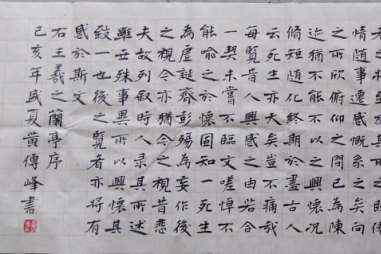 情隨事遷感慨係之矣向
之所欣俯仰之間已為陳
迹猶不能不以之興懷況
脩短隨化終期於盡古人
云死生亦大矣豈不痛哉
每覽昔人興感之由若合
一契未嘗不臨文嗟悼不
能喻之於懷固知一死生
為虛誕齊彭殤為妄作後
之視今亦猶今之視昔悲
夫故列敘時人錄其所述
雖世殊事異所以興懷其
致一也後之覽者亦將有
感於斯文
右王羲之蘭亭序
己亥年盛夏黃傳峰書